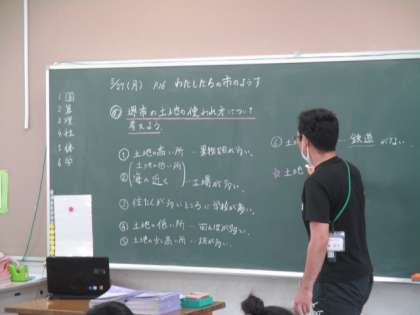 5/27(月) P.16 わたしたちの市のようす
め 堺市の土地の使われ方について
考えよう。
① 土地の高い所…果樹園が多い。
② 土地の低い所
海の近く
…工場が多い。
③ 住たくが多いところに学校が多い。
④ 土地の低い所…田んぼが多い。
⑤ 土地の少し高い所…
⑥ 土 … 鉄道が多い。
☆土地
1 国
2 算
3 理
4 社
5 体
6 学